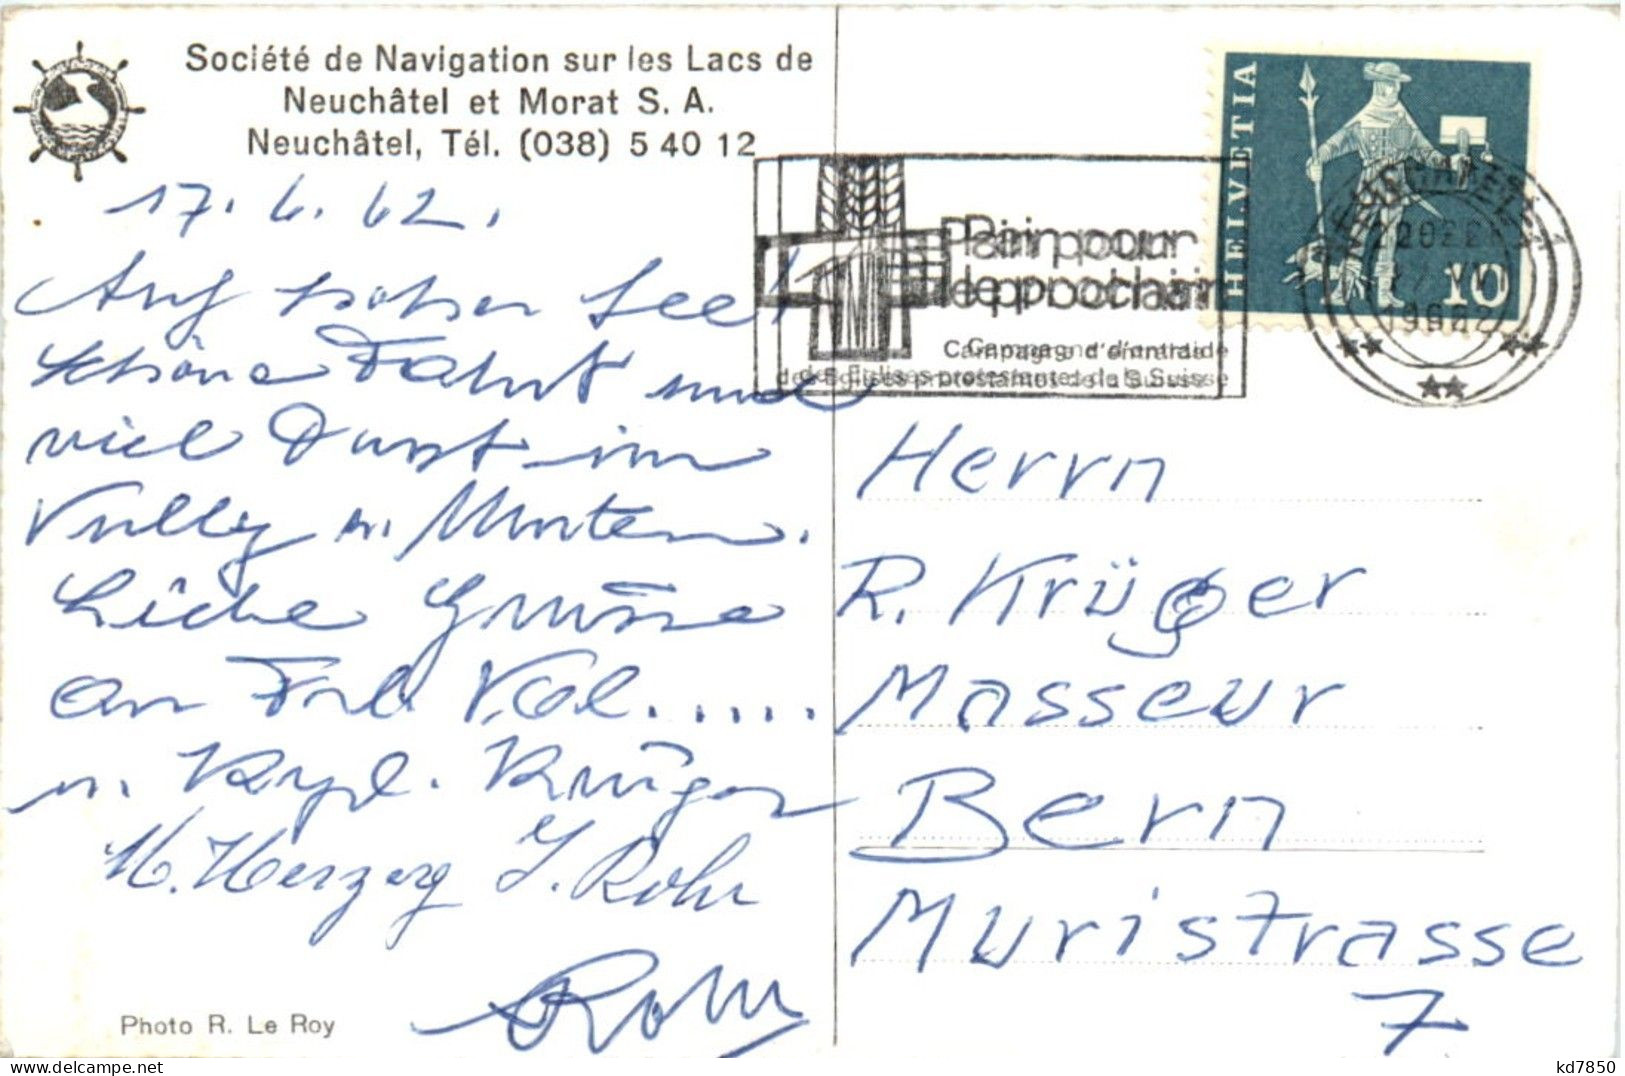 Société de Navigation sur les Lacs de
Neuchâtel et Morat S. A.
Neuchâtel, Tél. (038) 5 40 12
17. 6. 62.
Auf hoher See!
Schöne Fahrt und
viel Durst im
Vully u. Murten.
Liebe Grüsse
an Frl. Val.....
u. Kryl. Krüger
H. Herzog J. Rohr
Rohr
Photo R. Le Roy
Pain pour
le prochain
Campagne d'entraide
des Eglises protestantes de la Suisse
HELVETIA
10
NEUCHATEL
1962
Herrn
R. Krüger
Masseur
Bern
Muristrasse
7
kd7850